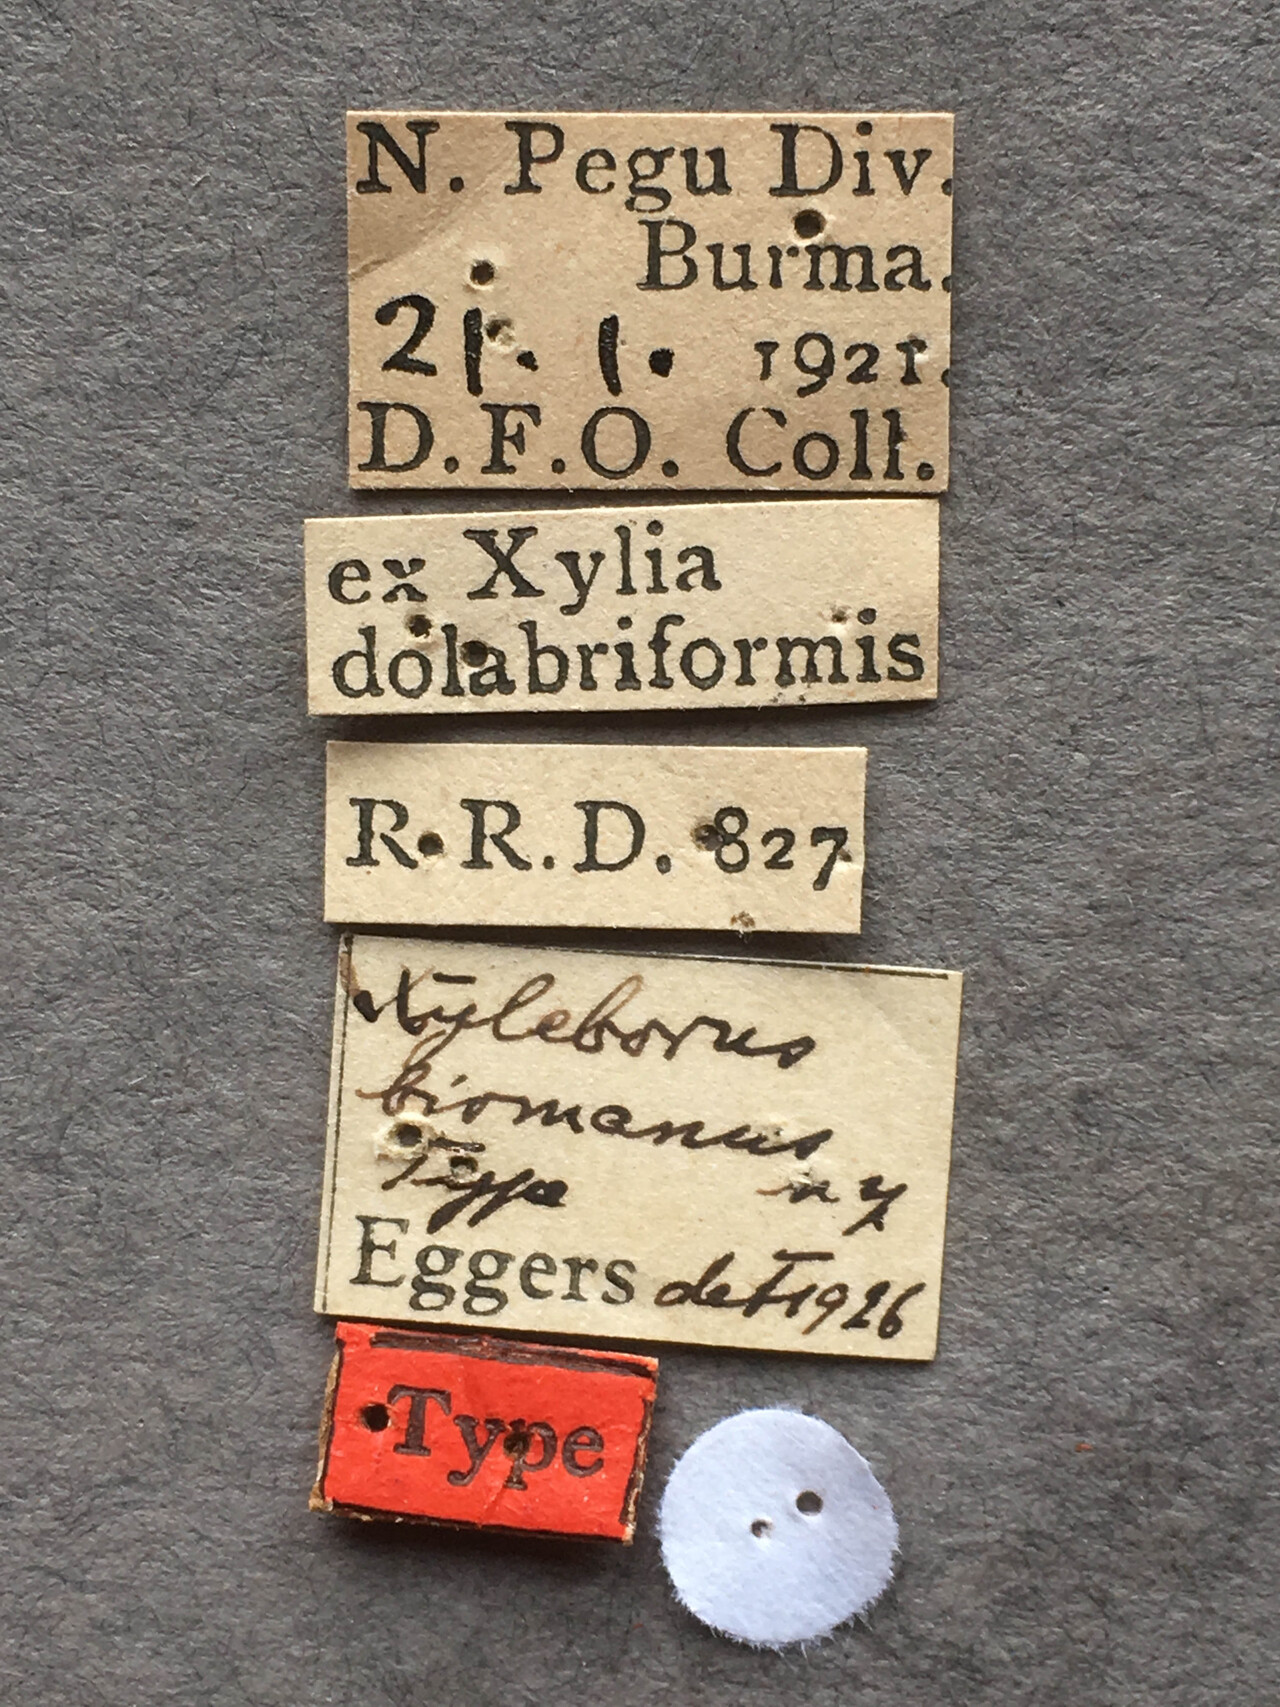 N. Pegu Div.
Burma.
21. 1. 1921.
D.F.O. Coll.
ex Xylia
dolabriformis
R.R.D. 827
Xyleborus
biomanus
Type
Eggers det 1926
Type